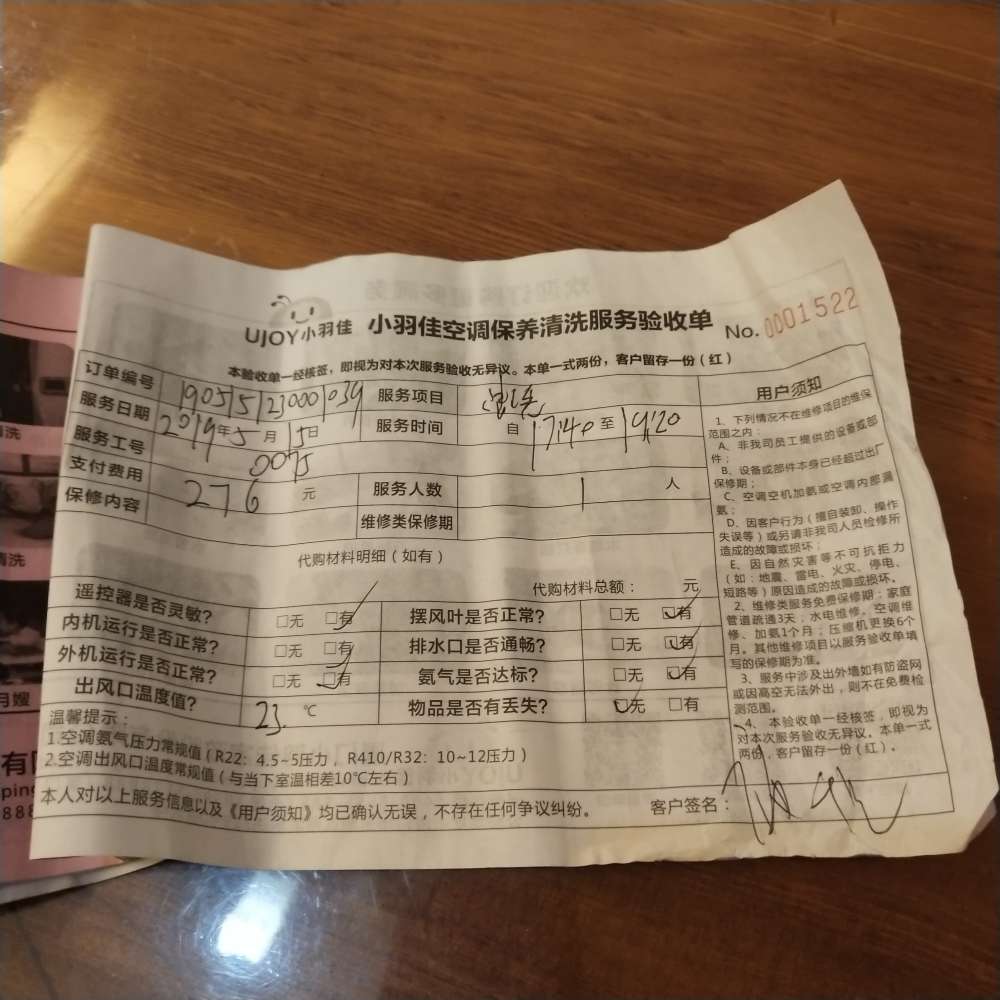 UJOY小羽佳 小羽佳空调保养清洗服务验收单 No. 0001522
本验收单一经核签，即视为对本次服务验收无异议。本单一式两份，客户留存一份（红）
订单编号 1905152300039 服务项目 清洗
服务日期 2019年5月15日 服务时间 自 17:40 至 19:20
服务工号 0075
支付费用 276 元 服务人数 1 人
保修内容 维修类保修期
代购材料明细（如有）
代购材料总额： 元
遥控器是否灵敏？ □无 □有 摆风叶是否正常？ □无 □有
内机运行是否正常？ □无 □有 排水口是否通畅？ □无 □有
外机运行是否正常？ □无 □有 氨气是否达标？ □无 □有
出风口温度值？ 23. ℃ 物品是否有丢失？ □无 □有
温馨提示：
1.空调氨气压力常规值（R22：4.5~5压力，R410/R32：10~12压力）
2.空调出风口温度常规值（与当下室温相差10℃左右）
本人对以上服务信息以及《用户须知》均已确认无误，不存在任何争议纠纷。 客户签名：
用户须知
1、下列情况不在维修项目的维保
范围之内：
A、非我司员工提供的设备或部
件；
B、设备或部件本身已经超过出厂
保修期；
C、空调空机加氨或空调内部漏
氨；
D、因客户行为（擅自装卸、操作
失误等）或另请非我司人员检修所
造成的故障或损坏；
E、因自然灾害等不可抗拒力
（如：地震、雷电、火灾、停电、
短路等）原因造成的故障或损坏。
2、维修类服务免费保修期：家庭
管道疏通3天；水电维修、空调维
修、加氨1个月；压缩机更换6个
月。其他维修项目以服务验收单填
写的保修期为准。
3、服务中涉及出外墙如有防盗网
或因高空无法外出，则不在免费检
测范围。
4、本验收单一经核签，即视为
对本次服务验收无异议。本单一式
两份，客户留存一份（红）。
清洗
清洗
月嫂
ping
888